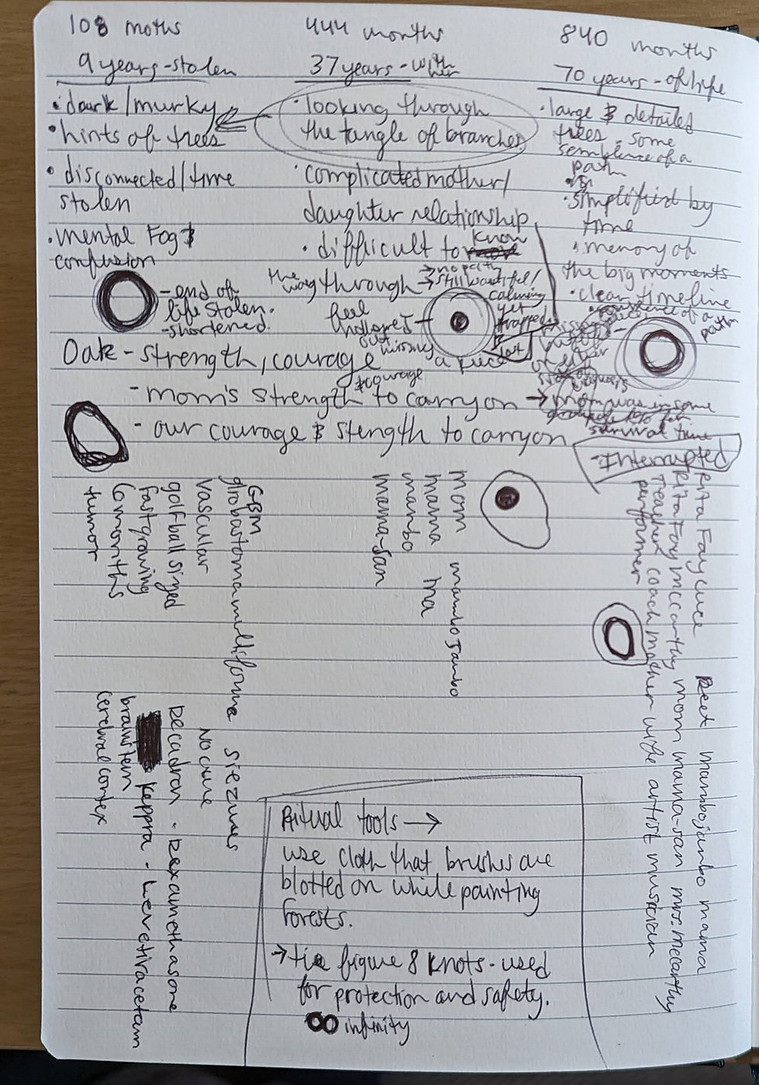 108 moths
9 years - stolen
• dark/murky
• hints of trees
• disconnected/time
stolen
• mental Fog &
confusion
- end of
life stolen.
- shortened.
444 months
37 years - with her
• looking through
the tangle of branches
• complicated mother/
daughter relationship
• difficult to know
the way through → no path
→ still beautiful/
calming
yet
trapped
feel
hollowed
out
missing
a piece
lost
840 months
70 years - of life
• large & detailed
trees - some
semblence of a
path
• simplified by
time
• memory of
the big moments
• clear timeline
semblence of a
path
Oak - strength, courage
- mom's strength & courage to carry on → mom was in some
survival time
- our courage & stength to carry on
- Interrupted
GBM
gliobastoma multiforme siezures
vascular no cure
golf ball sized Decadron - Dexamethasone
fast growing Keppra - Levetiracetam
6 months brainstem
tumor cerebral cortex
mom mambo Jambo
mama ma
mambo
mama-san
Rita Fay Cuce Reet mambojambo mama
Rita Fay McCarthy mom mama-san mrs. McCarthy
Teacher coach mother wife artist musician
performer
Ritual tools →
use cloth that brushes are
blotted on while painting
forests.
→ tie figure 8 knots - used
for protection and safety.
∞ infinity